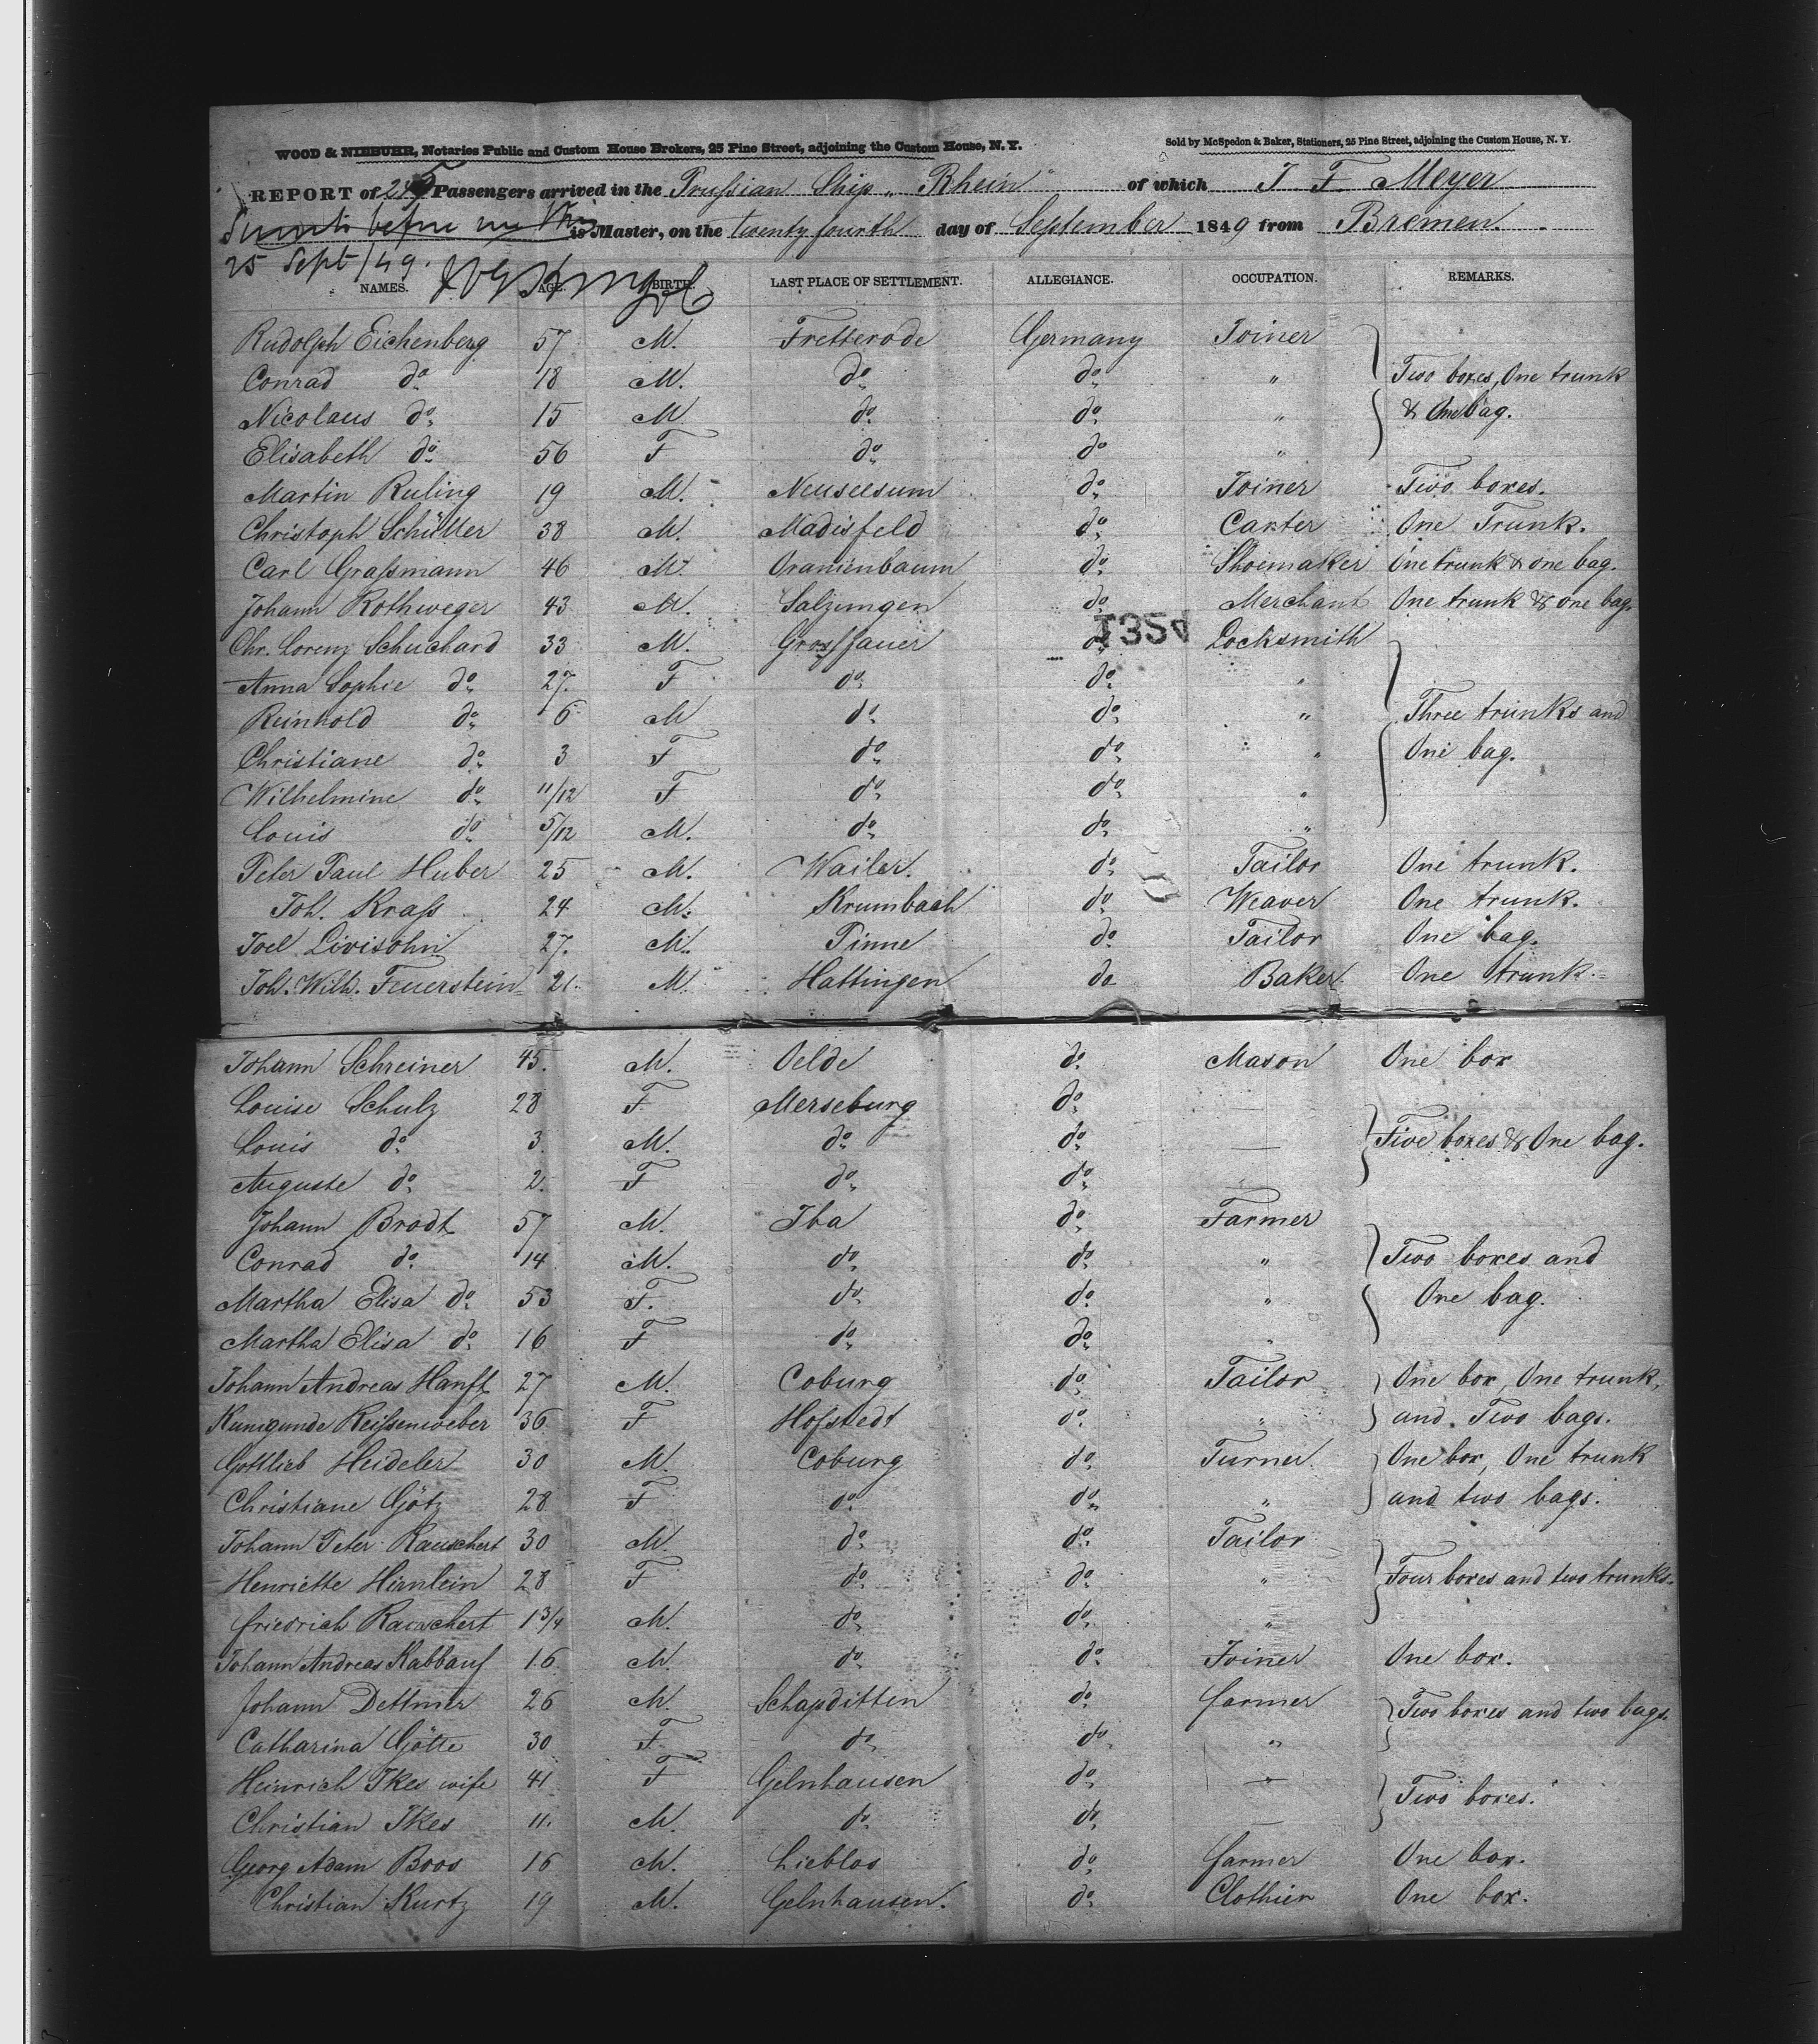 WOOD & NIEBUHR, Notaries Public and Custom House Brokers, 25 Pine Street, adjoining the Custom House, N. Y.
Sold by McSpedon & Baker, Stationers, 25 Pine Street, adjoining the Custom House, N. Y.
REPORT of 245 Passengers arrived in the Prussian Ship "Rhein" of which J F Meyer
Sworn to before me this is Master, on the twenty fourth day of September 1849 from Bremen.
25 Sept/49.
NAMES. AGE. BIRTH. LAST PLACE OF SETTLEMENT. ALLEGIANCE. OCCUPATION. REMARKS.
Rudolph Eichenberg 57 M. Fretterode Germany Joiner
Conrad do 18 M. do do " Two boxes, One trunk
Nicolaus do 15 M do do " & One bag.
Elisabeth do 56 F do do "
Martin Ruling 19 M. Neuseesum do Joiner Two boxes.
Christoph Schütter 38 M. Madisfeld do Carter One Trunk.
Carl Graßmann 46 M. Oranienbaum do Shoemaker One trunk & one bag.
Johann Rothweger 43 M. Salzungen do Merchant One trunk & one bag.
Chr. Lorenz Schuchard 33 M. Grossfauer do Locksmith
Anna Sophie do 27. F do do "
Reinhold do 6 M do do " Three trunks and
Christiane do 3 F do do " One bag.
Wilhelmine do 11/12 F do do "
Louis do 5/12 M. do do "
Peter Paul Huber 25 M. Wailer. do Tailor One trunk.
Joh. Kraß 24 M. Krumbach do Weaver One trunk.
Joel Livisohn 27. M. Pinne do Tailor One bag.
Joh. Wilh. Feuerstein 21. M. Hattingen do Baker One trunk.
Johann Schreiner 45. M. Oelde do Mason One box
Louise Schulz 28 F. Merseburg do —
Louis do 3. M. do do — Five boxes & One bag.
Auguste do 2. F do do
Johann Brodt 57 M. Iba do Farmer
Conrad do 14 M. do do " Two boxes and
Martha Elisa do 53 F. do do " One bag.
Martha Elisa do 16 F do do "
Johann Andreas Hanft 27 M. Coburg do Tailor One box, One trunk,
Kunigunde Reißenweber 36 F Hofstedt do " and Two bags.
Gottlieb Heideler 30 M. Coburg do Turner One box, One trunk
Christiane Götz 28 F do do " and two bags.
Johann Peter Rauschert 30 M. do do Tailor
Henriette Hirnlein 28 F do do " Four boxes and two trunks.
Friedrich Rauschert 1 3/4 M. do do "
Johann Andreas Kabbauf 16 M. do do Joiner One box.
Johann Dettmer 26 M. Schapditten do farmer Two boxes and two bags.
Catharina Götte 30 F. do do "
Heinrich Ikes wife 41 F Gelnhausen do —
Christian Ikes 11. M. do do Two boxes.
Georg Adam Boos 16 M. Lieblos do farmer One box.
Christian Kurtz 19 M. Gelnhausen. do Clothier One box.